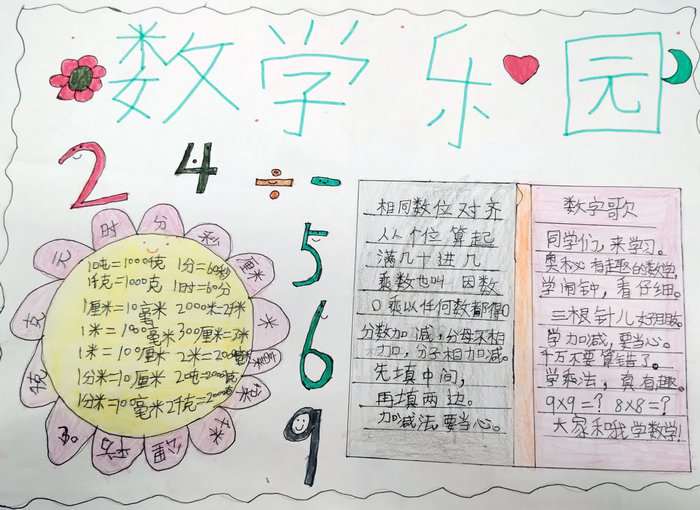 数学乐园
2 4 ÷ -
5
6
9
元 时 分 秒 厘米
米
克
千克
1分=60秒
1千克=1000克 1时=60分
1厘米=10毫米 2000米=2千米
1米=1000毫米 300厘米=3米
1米=10分米
1分米=10厘米
相同数位对齐
从个位算起
满几十进几
乘数也叫因数
0乘以任何数都得0
分数加减,分母不相
加,分子相加减。
先填中间,
再填两边。
加减法,要当心。
数字歌
同学们,来学习。
奥秘有趣的数学
学闹钟,看仔细。
三根针儿好朋友。
学加减,要当心。
千万不要算错了。
学乘法,真有趣。
9×9=? 8×8=?
大家和我学数学!